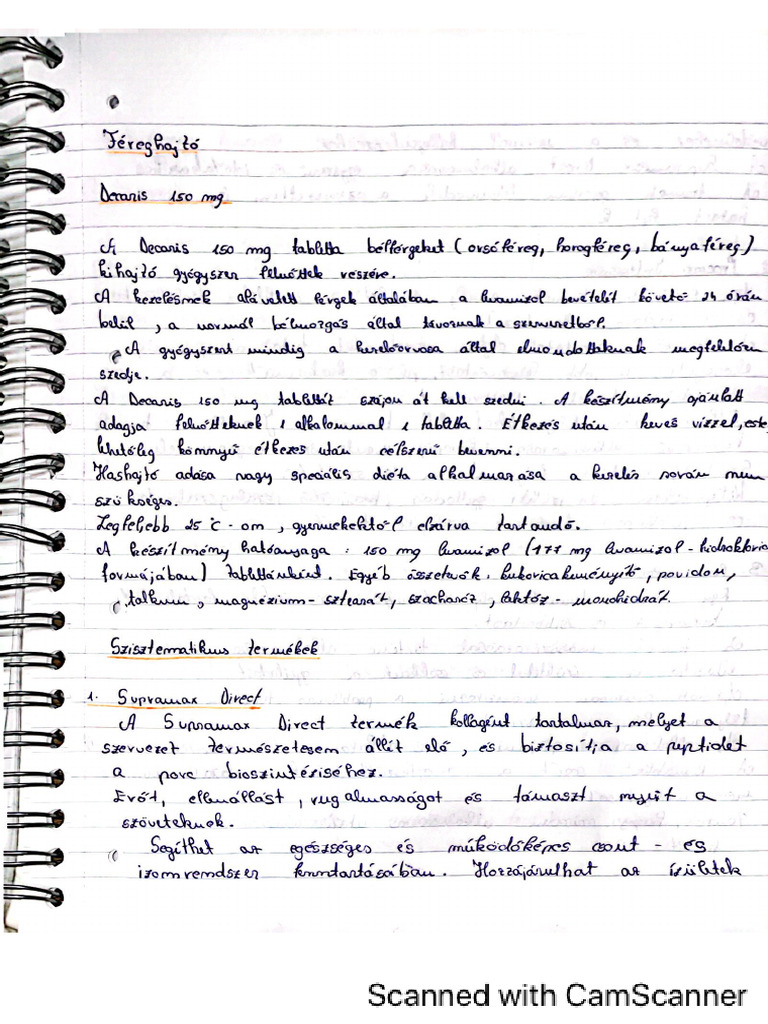 Féreghajtó
Decaris 150 mg
A Decaris 150 mg tabletta bélférgeket (orsóféreg, horogféreg, bányaféreg)
kihajtó gyógyszer felnőttek részére.
A kezelésnek alávetett férgek általában a levamizol bevételét követő 24 órán
belül, a normál bélmozgás által távoznak a szervezetből.
A gyógyszert mindig a kezelőorvosa által elmondottaknak megfelelően
szedje.
A Decaris 150 mg tablettát szájon át kell szedni. A készítmény ajánlott
adagja felnőtteknek 1 alkalommal 1 tabletta. Étkezés után kevés vízzel, este
lehetőleg könnyű étkezés után célszerű bevenni.
Hashajtó adása vagy speciális diéta alkalmazása a kezelés során nem
szükséges.
Legfeljebb 25°C-on, gyermekektől elzárva tartandó.
A készítmény hatóanyaga: 150 mg levamizol (177 mg levamizol-hidroklorid
formájában) tablettánként. Egyéb összetevők: kukoricakeményítő, povidon,
talkum, magnézium-sztearát, szacharóz, laktóz-monohidrát.
Szisztematikus termékek
1. Supramax Direct
A Supramax Direct termék kollagént tartalmaz, melyet a
szervezet természetesen állít elő, és biztosítja a peptidet
a porc bioszintéziséhez.
Erőt, ellenállást, rugalmasságot és támaszt nyújt a
szöveteknek.
Segíthet az egészséges és működőképes csont- és
izomrendszer fenntartásában. Hozzájárulhat az ízületek
Scanned with CamScanner